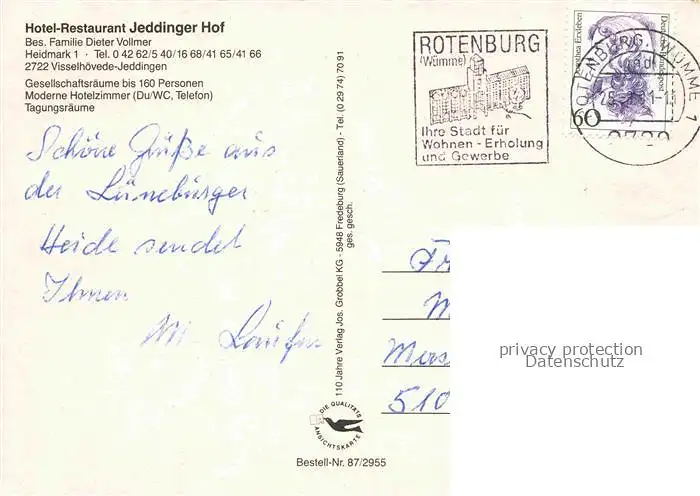 Hotel-Restaurant Jeddinger Hof
Bes. Familie Dieter Vollmer
Heidmark 1 · Tel. 0 42 62/5 40/16 68/41 65/41 66
2722 Visselhövede-Jeddingen
Gesellschaftsräume bis 160 Personen
Moderne Hotelzimmer (Du/WC, Telefon)
Tagungsräume
Schöne Grüße aus
der Lüneburger
Heide sendet
Ihnen
M. Laufer
110 Jahre Verlag Jos. Grobbel KG - 5948 Fredeburg (Sauerland) - Tel. (0 29 74) 70 91
ges. gesch.
DIE QUALITÄTS
ANSICHTSKARTE
Bestell-Nr. 87/2955
ROTENBURG
(Wümme)
Ihre Stadt für
Wohnen - Erholung
und Gewerbe
Dorothea Erxleben
Deutsche Bundespost
60
Fr
M
Mers
510
privacy protection
Datenschutz